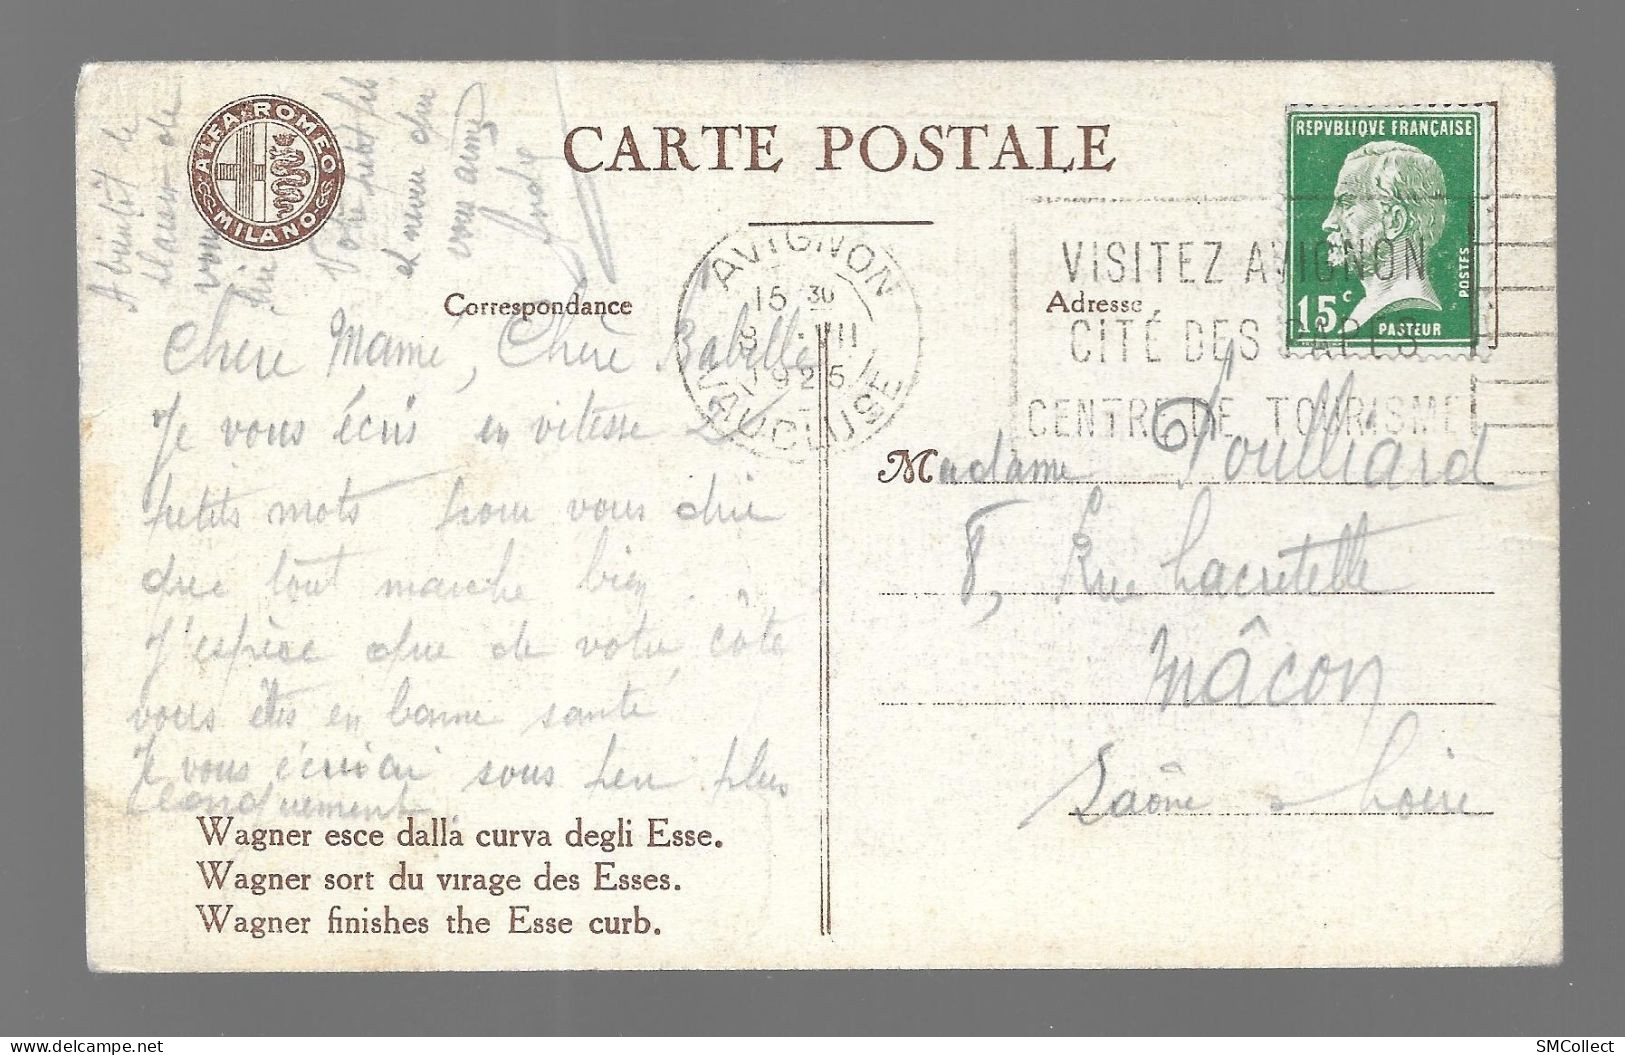 ALFA-ROMEO
MILANO
CARTE POSTALE
REPVBLIQVE FRANÇAISE
POSTES
15c
PASTEUR
AVIGNON
15 30
8 .VII
1925
VAUCLUSE
VISITEZ AVIGNON
CITÉ DES PAPES
CENTRE DE TOURISME
Correspondance
Adresse
A bientôt le
plaisir de
vous
lire
Votre petit fils
et neveu qui
vous aime
André
Chere Mamé, Chere Babelle
Je vous écris en vitesse 2
petits mots pour vous dire
que tout marche bien.
J'espère que de votre côte
vous êtes en bonne santé
Je vous écrirai sous peu plus
longuement.
Madame Poulliard
8, Rue Lacretelle
Mâcon
Saône & Loire
Wagner esce dalla curva degli Esse.
Wagner sort du virage des Esses.
Wagner finishes the Esse curb.
SMCollect